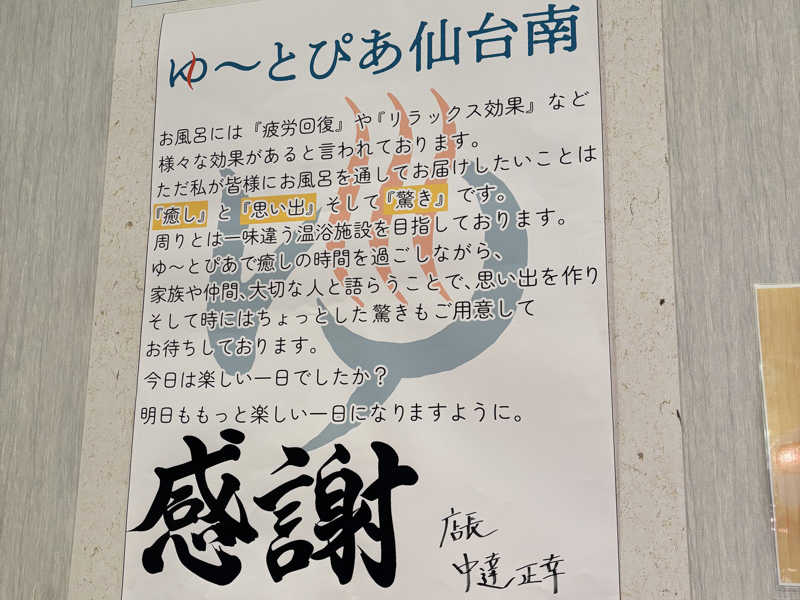 ゆ〜とぴあ仙台南
お風呂には『疲労回復』や『リラックス効果』など
様々な効果があると言われております。
ただ私が皆様にお風呂を通してお届けしたいことは
『癒し』と『思い出』そして『驚き』です。
周りとは一味違う温浴施設を目指しております。
ゆ〜とぴあで癒しの時間を過ごしながら、
家族や仲間、大切な人と語らうことで、思い出を作り
そして時にはちょっとした驚きもご用意して
お待ちしております。
今日は楽しい一日でしたか?
明日ももっと楽しい一日になりますように。
感謝
店長
中達 正幸